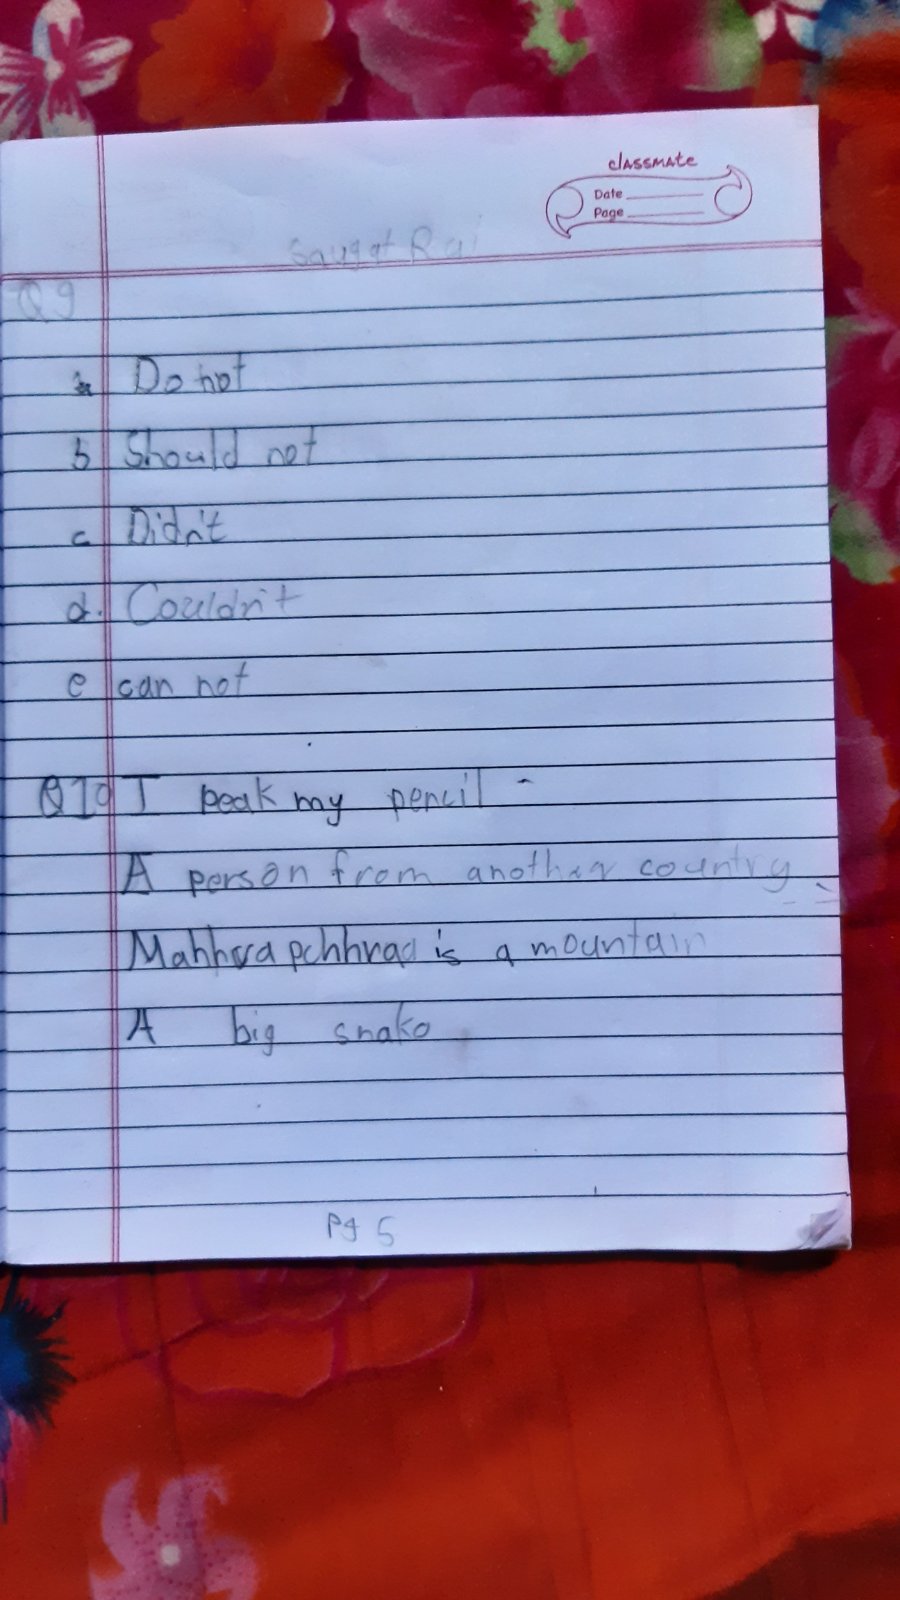 classmate
Date
Page
Saugat Rai
Q 9
a Do not
b Should not
c Didn't
d. Couldn't
e can not
Q 10 I peak my pencil
A person from another country
is a mountain
A big snake
Pg 5